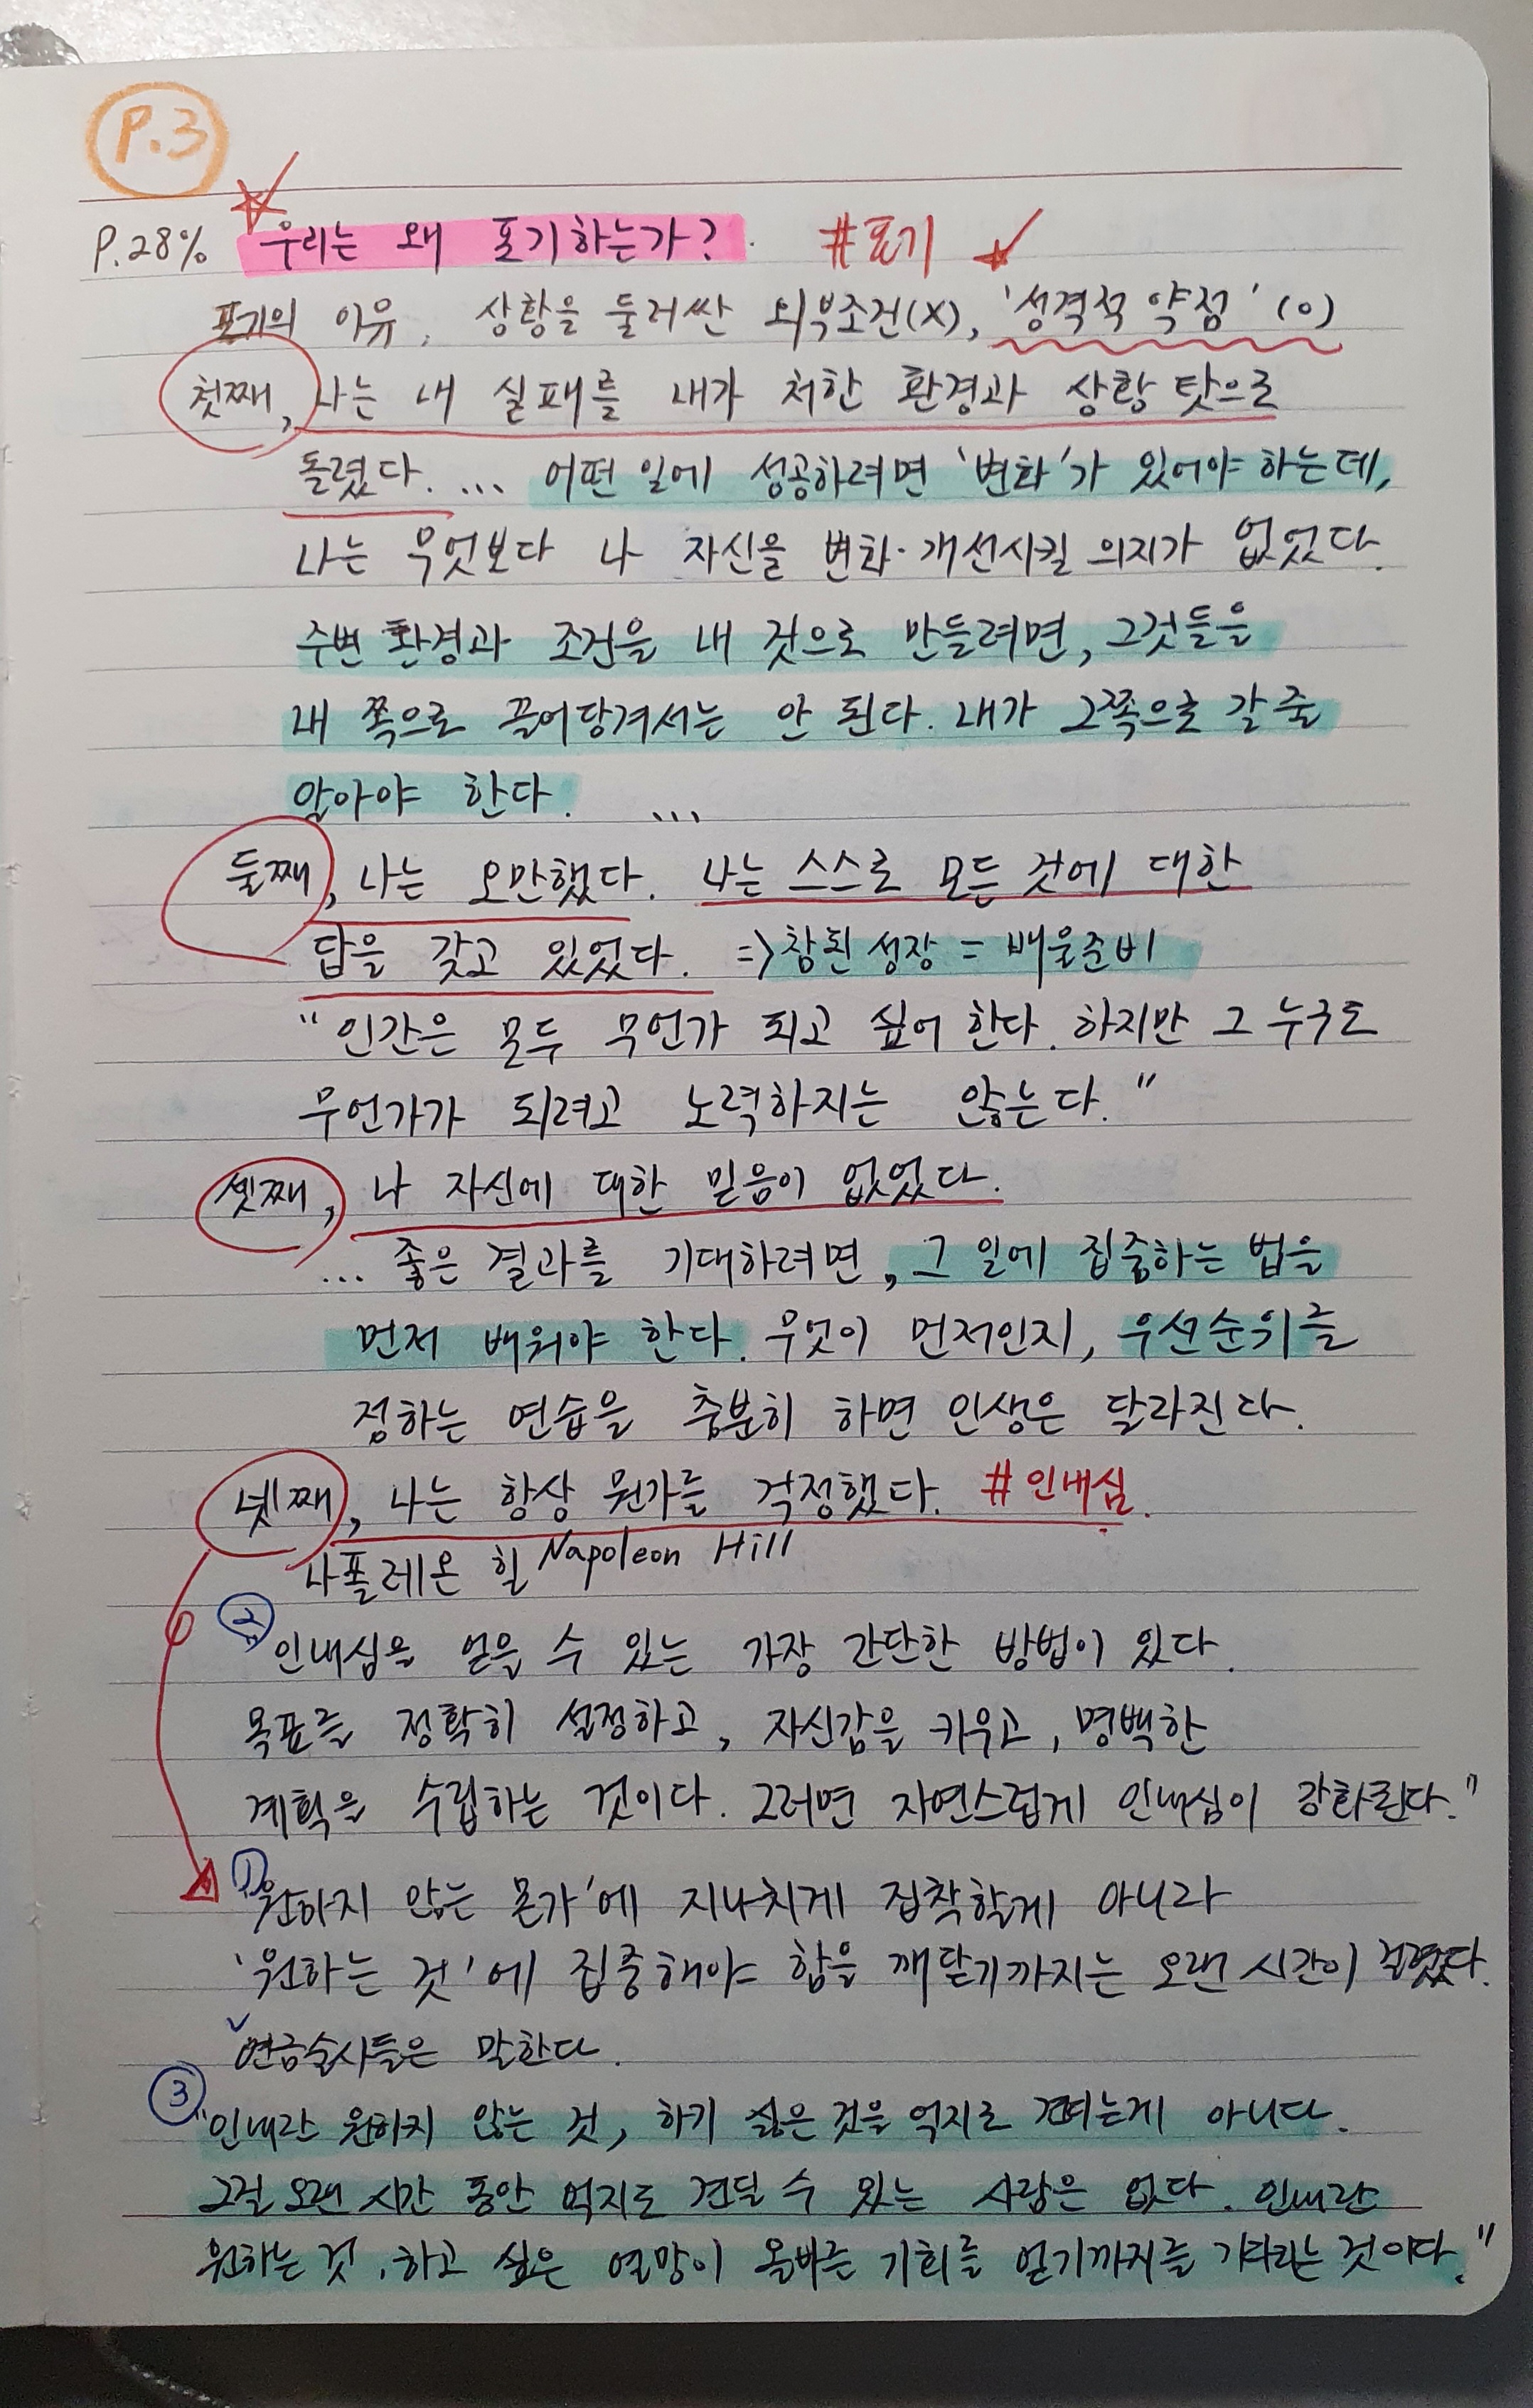 P.3
P.28% 우리는 왜 포기하는가? #포기
포기의 이유, 상황을 둘러싼 외부조건(X), '성격적 약점' (o)
첫째, 나는 내 실패를 내가 처한 환경과 상황 탓으로
돌렸다. ... 어떤 일에 성공하려면 '변화'가 있어야 하는데,
나는 무엇보다 나 자신을 변화·개선시킬 의지가 없었다.
주변 환경과 조건을 내 것으로 만들려면, 그것들을
내 쪽으로 끌어당겨서는 안 된다. 내가 그쪽으로 갈 줄
알아야 한다. ...
둘째, 나는 오만했다. 나는 스스로 모든 것에 대한
답을 갖고 있었다. => 참된 성장 = 배울준비
"인간은 모두 무언가 되고 싶어 한다. 하지만 그 누구도
무언가가 되려고 노력하지는 않는다."
셋째, 나 자신에 대한 믿음이 없었다.
... 좋은 결과를 기대하려면, 그 일에 집중하는 법을
먼저 배워야 한다. 무엇이 먼저인지, 우선순위를
정하는 연습을 충분히 하면 인생은 달라진다.
넷째, 나는 항상 뭔가를 걱정했다. #인내심.
나폴레온 힐 Napoleon Hill
② "인내심을 얻을 수 있는 가장 간단한 방법이 있다.
목표를 정확히 설정하고, 자신감을 키우고, 명백한
계획을 수립하는 것이다. 그러면 자연스럽게 인내심이 강화된다."
① '원하지 않는 몬가'에 지나치게 집착할게 아니라
'원하는 것'에 집중해야 함을 깨닫기까지는 오랜 시간이 걸렸다.
연금술사들은 말한다.
③ "인내란 원하지 않는 것, 하기 싫은 것을 억지로 견디는게 아니다.
그걸 오랜 시간 동안 억지로 견딜 수 있는 사람은 없다. 인내란
원하는 것, 하고 싶은 열망이 올바른 기회를 얻기까지를 기다리는 것이다."